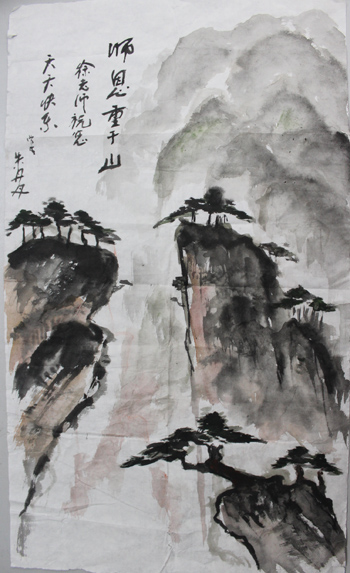 师恩重于山
徐老师祝您
天天快乐
朱丹丹